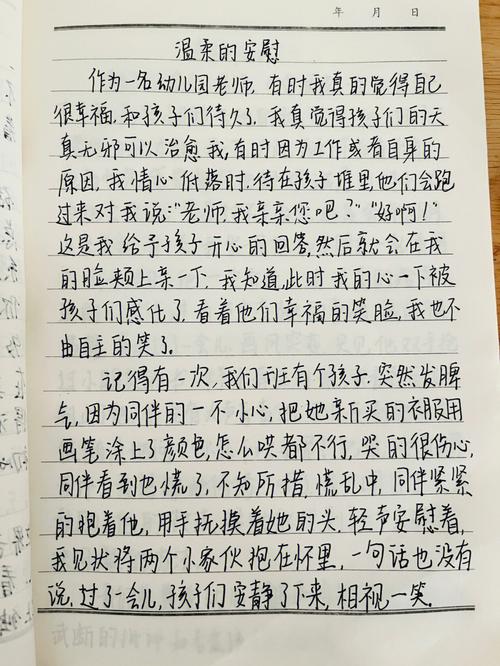 年 月 日
温柔的安慰
作为一名幼儿园老师,有时我真的觉得自己
很幸福,和孩子们待久了,我真觉得孩子们的天
真无邪可以治愈我,有时因为工作或者自身的
原因,我情心低落时,待在孩子堆里,他们会跑
过来对我说:“老师,我亲亲您吧?”“好啊!”
这是我给予孩子开心的回答,然后就会在我
的脸颊上亲一下,我知道,此时我的心一下被
孩子们感化了,看着他们幸福的笑脸,我也不
由自主的笑了。
记得有一次,我们班有个孩子突然发脾
气,因为同伴的一不小心,把她新买的衣服用
画笔涂上了颜色,怎么哄都不行,哭的很伤心,
同伴看到也慌了,不知所措,慌乱中,同伴紧紧
的抱着他,用手抚摸着她的头,轻声安慰着,
我见状将两个小家伙抱在怀里,一句话也没有
说,过了一会儿,孩子们安静了下来,相视一笑。
武断的